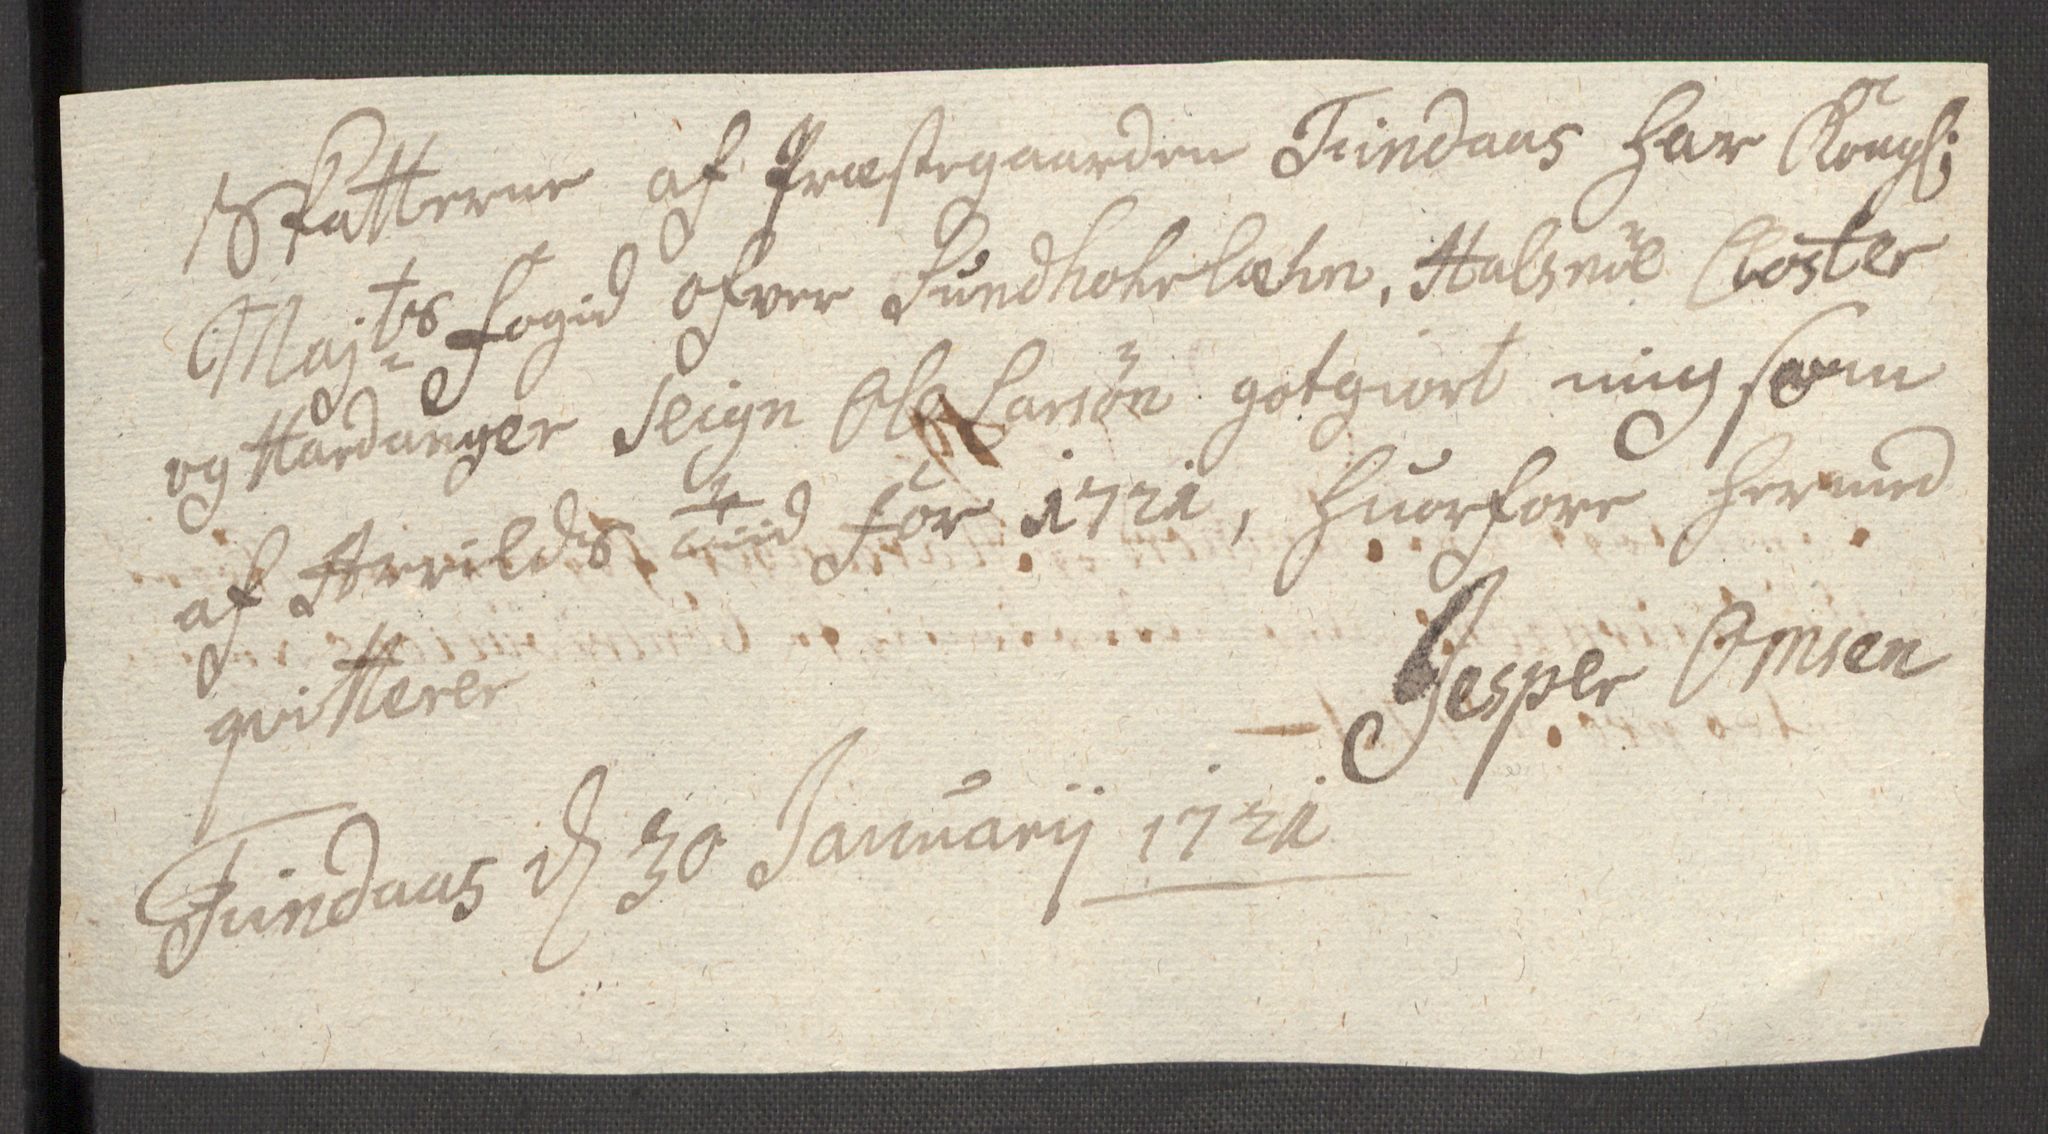 Skatterne af Præstegaarden Findaas har Kongl:
Maj:ts fogid ofver Sundhorlæhn, Halsnöe Closter
og Hardanger Seign Ole Larsön gotgiort mig som
af Arrilds tiid for 1721, huorfore hermed
qvitterer
Jesper Omsen
Findaas d 30 Januarij 1721